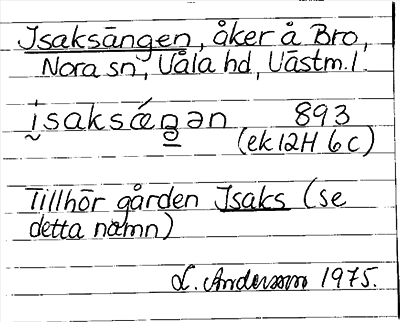 Isaksängen, åker å Bro,
Nora sn, Våla hd, Västm. l.
i̭saksǽŋ̲ən 893
(ek 12H 6c)
Tillhör gården Isaks (se
detta namn)
L. Andersson 1975.